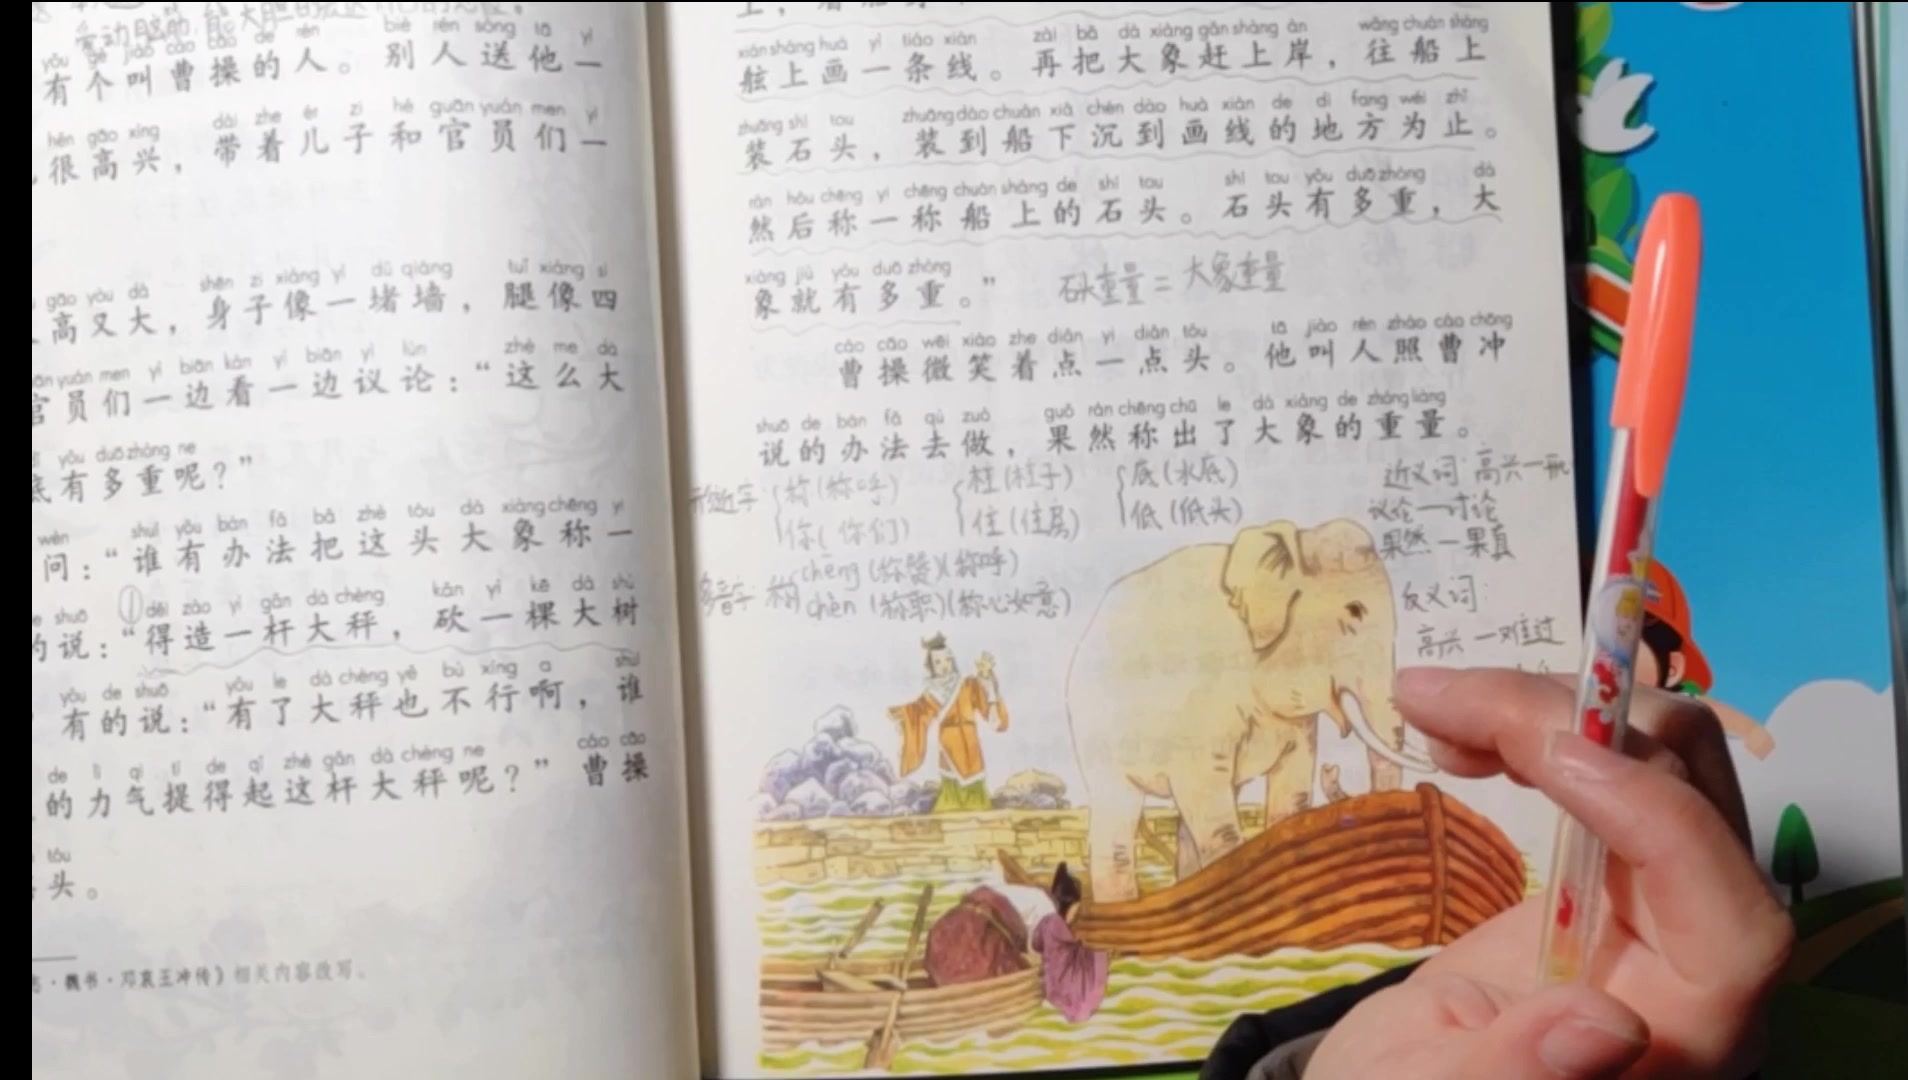 yǒu gè jiào cáo cāo de rén bié rén sòng tā yì
有个叫曹操的人。别人送他一
hěn gāo xìng dài zhe ér zi hé guān yuán men yì
很高兴，带着儿子和官员们一
gāo yòu dà shēn zi xiàng yì dǔ qiáng tuǐ xiàng sì
高又大，身子像一堵墙，腿像四
yuán men yì biān kàn yì biān yì lùn zhè me dà
官员们一边看一边议论：“这么大
yǒu duō zhòng ne
底有多重呢？”
wèn shuí yǒu bàn fǎ bǎ zhè tóu dà xiàng chēng yì
问：“谁有办法把这头大象称一
shuō děi zào yì gǎn dà chèng kǎn yì kē dà shù
的说：“得造一杆大秤，砍一棵大树
yǒu de shuō yǒu le dà chèng yě bù xíng a shuí
有的说：“有了大秤也不行啊，谁
de lì qi tí de qǐ zhè gǎn dà chèng ne cáo cāo
的力气提得起这杆大秤呢？”曹操
tóu
头。
·魏书·邓哀王冲传》相关内容改写。
xián shàng huà yì tiáo xiàn zài bǎ dà xiàng gǎn shàng àn wǎng chuán shàng
舷上画一条线。再把大象赶上岸，往船上
zhuāng shí tou zhuāng dào chuán xià chén dào huà xiàn de dì fang wéi zhǐ
装石头，装到船下沉到画线的地方为止。
rán hòu chēng yi chēng chuán shàng de shí tou shí tou yǒu duō zhòng dà
然后称一称船上的石头。石头有多重，大
xiàng jiù yǒu duō zhòng
象就有多重。” 石头重量=大象重量
cáo cāo wēi xiào zhe diǎn yi diǎn tóu tā jiào rén zhào cáo chōng
曹操微笑着点一点头。他叫人照曹冲
shuō de bàn fǎ qù zuò guǒ rán chēng chū le dà xiàng de zhòng liàng
说的办法去做，果然称出了大象的重量。
形近字 称(称呼) 柱(柱子) 底(水底)
你(你们) 住(住房) 低(低头)
多音字 称 chēng (称赞)(称呼)
chèn (称职)(称心如意)
近义词：高兴—
议论—讨论
果然—果真
反义词：
高兴—难过